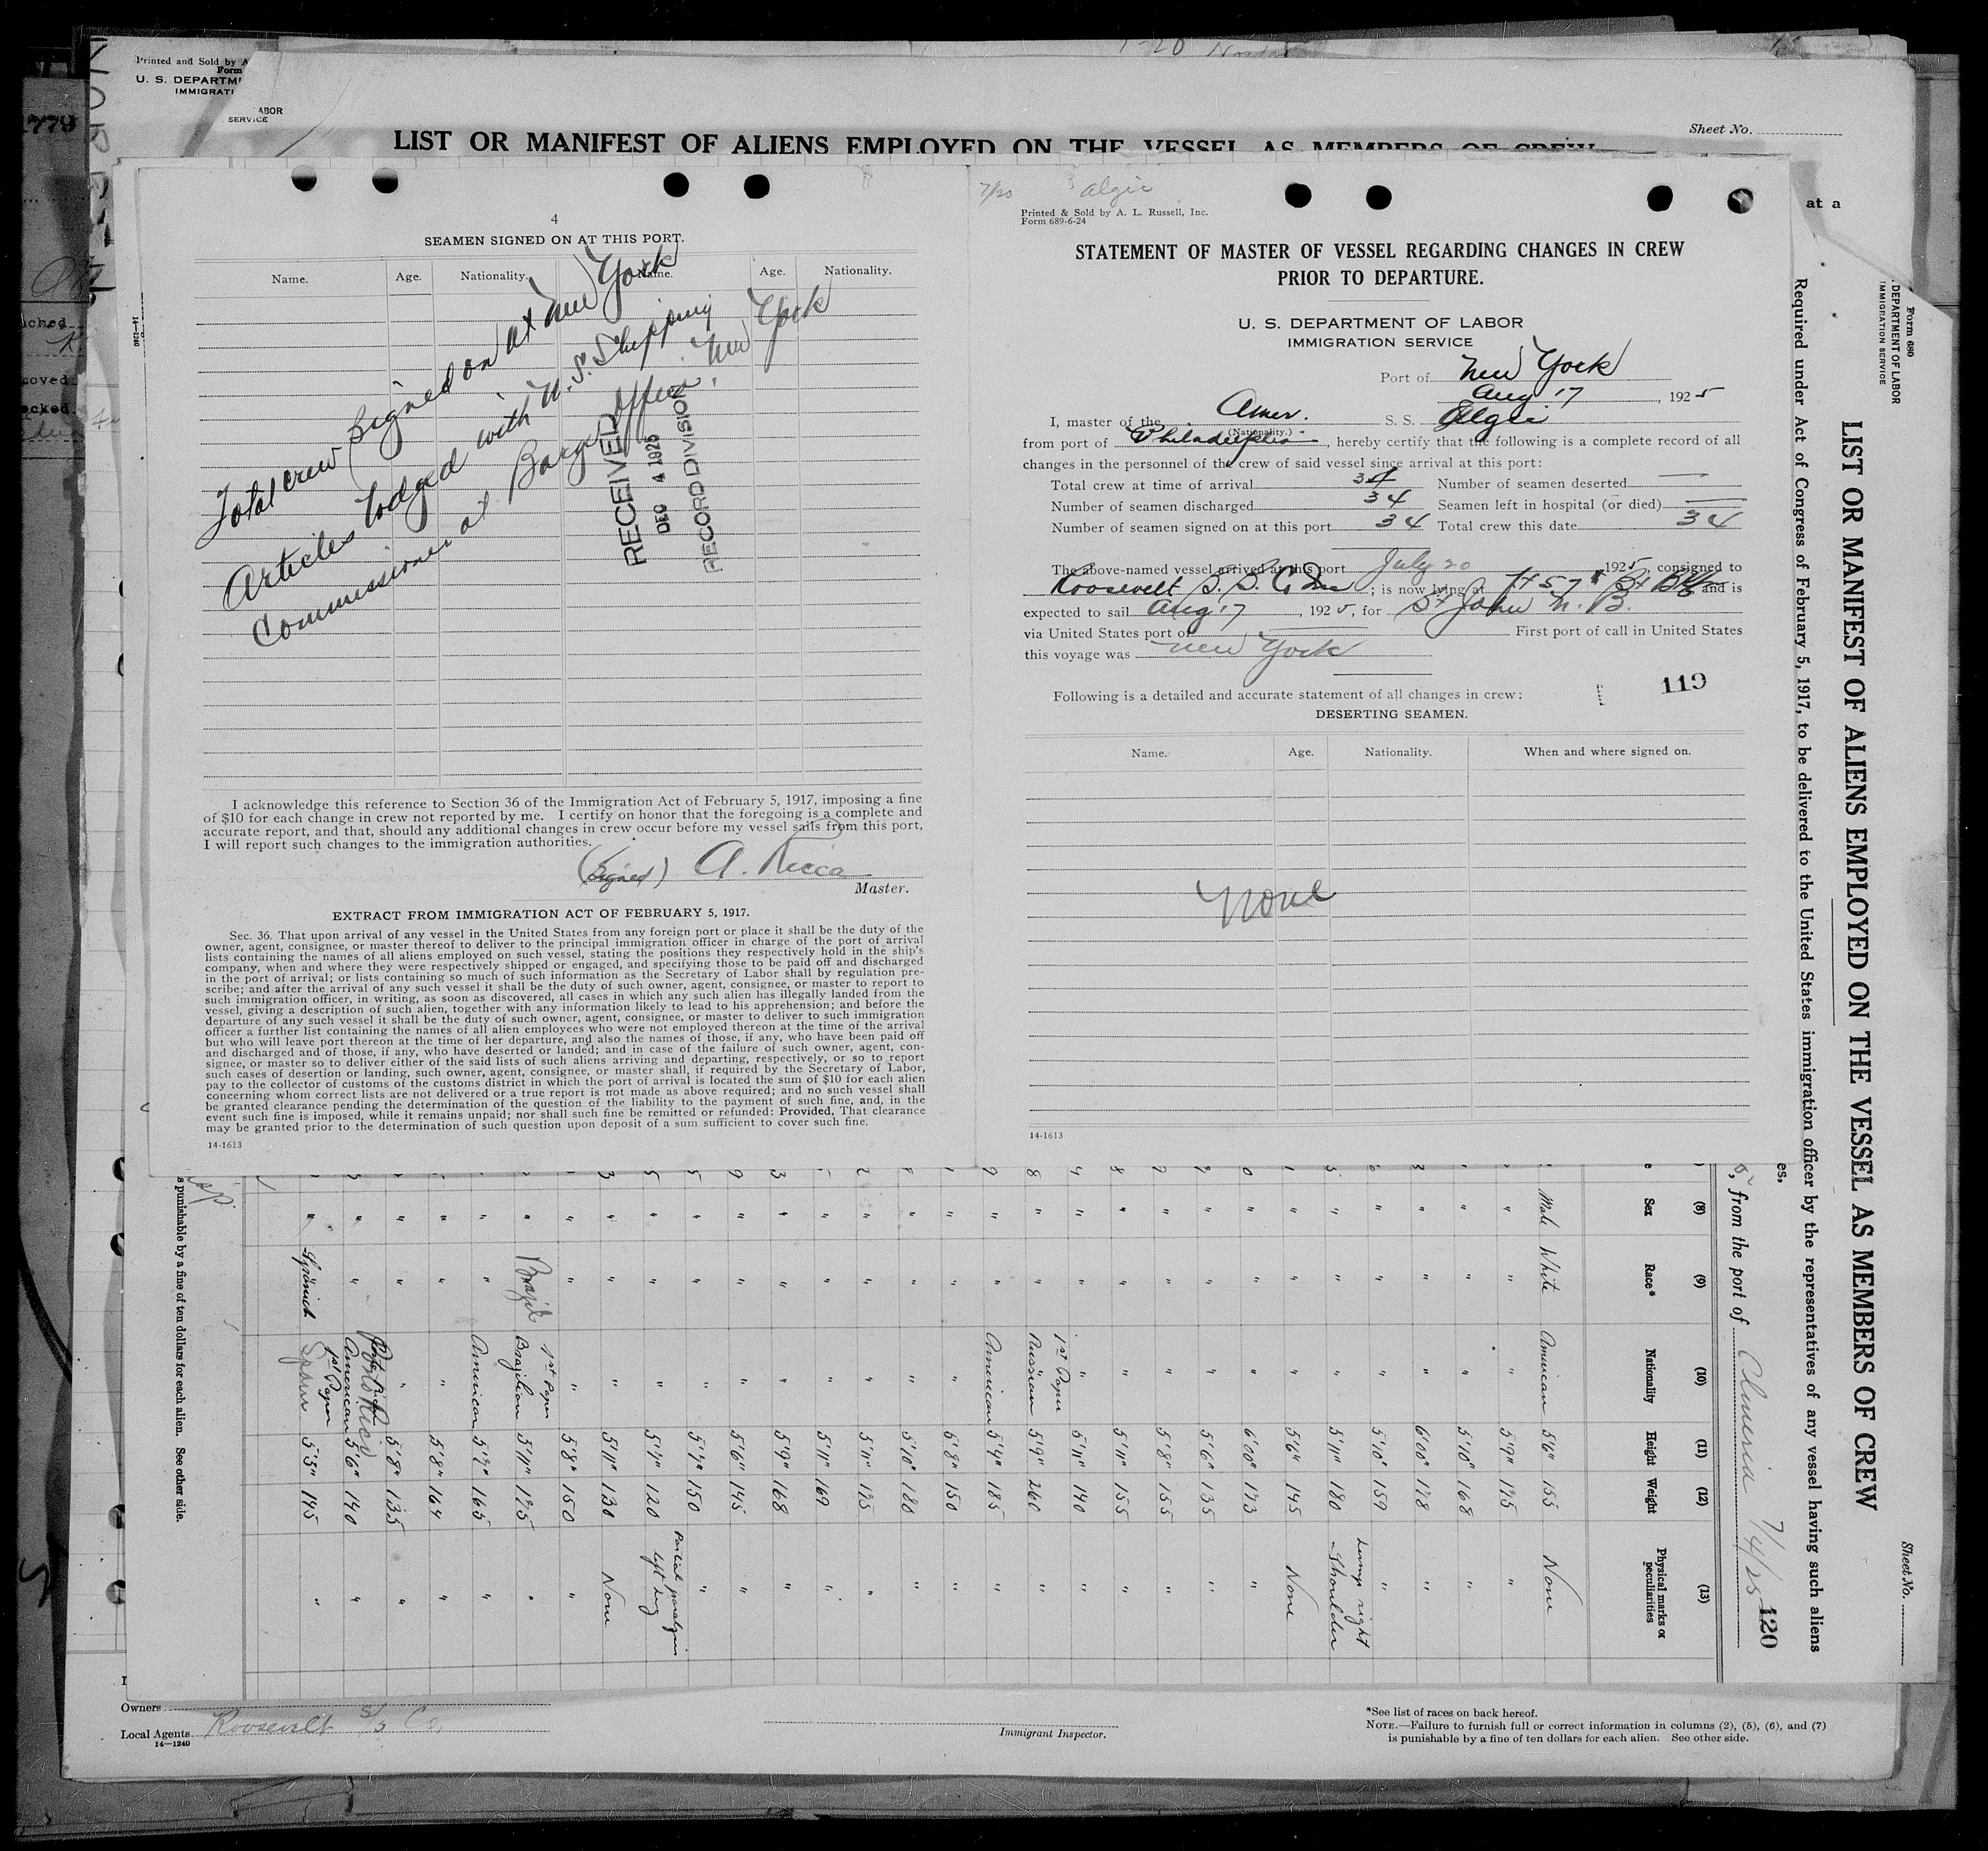 Printed and Sold by A
Form
U. S. DEPARTM
IMMIGRATI
ABOR
SERVICE
Sheet No.
LIST OR MANIFEST OF ALIENS EMPLOYED ON THE VESSEL AS MEMBERS OF CREW
at a
4
SEAMEN SIGNED ON AT THIS PORT.
Name. Age. Nationality. Name. Age. Nationality.
Total crew signed on at New York
Articles lodged with U.S. Shipping
Commissioner at Barge Office, New York
RECEIVED
DEC 4 1925
RECORD DIVISION
I acknowledge this reference to Section 36 of the Immigration Act of February 5, 1917, imposing a fine
of $10 for each change in crew not reported by me. I certify on honor that the foregoing is a complete and
accurate report, and that, should any additional changes in crew occur before my vessel sails from this port,
I will report such changes to the immigration authorities.
(Signed) A. Ricca
Master.
EXTRACT FROM IMMIGRATION ACT OF FEBRUARY 5, 1917.
Sec. 36. That upon arrival of any vessel in the United States from any foreign port or place it shall be the duty of the
owner, agent, consignee, or master thereof to deliver to the principal immigration officer in charge of the port of arrival
lists containing the names of all aliens employed on such vessel, stating the positions they respectively hold in the ship's
company, when and where they were respectively shipped or engaged, and specifying those to be paid off and discharged
in the port of arrival; or lists containing so much of such information as the Secretary of Labor shall by regulation pre-
scribe; and after the arrival of any such vessel it shall be the duty of such owner, agent, consignee, or master to report to
such immigration officer, in writing, as soon as discovered, all cases in which any such alien has illegally landed from the
vessel, giving a description of such alien, together with any information likely to lead to his apprehension; and before the
departure of any such vessel it shall be the duty of such owner, agent, consignee, or master to deliver to such immigration
officer a further list containing the names of all alien employees who were not employed thereon at the time of the arrival
but who will leave port thereon at the time of her departure, and also the names of those, if any, who have been paid off
and discharged and of those, if any, who have deserted or landed; and in case of the failure of such owner, agent, con-
signee, or master so to deliver either of the said lists of such aliens arriving and departing, respectively, or so to report
such cases of desertion or landing, such owner, agent, consignee, or master shall, if required by the Secretary of Labor,
pay to the collector of customs of the customs district in which the port of arrival is located the sum of $10 for each alien
concerning whom correct lists are not delivered or a true report is not made as above required; and no such vessel shall
be granted clearance pending the determination of the question of the liability to the payment of such fine, and, in the
event such fine is imposed, while it remains unpaid; nor shall such fine be remitted or refunded: Provided, That clearance
may be granted prior to the determination of such question upon deposit of a sum sufficient to cover such fine.
14-1613
7/20 Algic
Printed & Sold by A. L. Russell, Inc.
Form 689-6-24
STATEMENT OF MASTER OF VESSEL REGARDING CHANGES IN CREW
PRIOR TO DEPARTURE.
U. S. DEPARTMENT OF LABOR
IMMIGRATION SERVICE
Port of New York
Aug 17, 1925
I, master of the Amer. S. S. Algic
(Nationality.)
from port of Philadelphia, hereby certify that the following is a complete record of all
changes in the personnel of the crew of said vessel since arrival at this port:
Total crew at time of arrival 34 Number of seamen deserted
Number of seamen discharged 34 Seamen left in hospital (or died)
Number of seamen signed on at this port 34 Total crew this date 34
The above-named vessel arrived at this port July 20 1925, consigned to
Roosevelt S. S. Co.; is now lying at ft 57 St and is
expected to sail Aug 17, 1925, for St John N. B.
via United States port of First port of call in United States
this voyage was New York
119
Following is a detailed and accurate statement of all changes in crew:
DESERTING SEAMEN.
Name. Age. Nationality. When and where signed on.
None
14-1613
Form 680
DEPARTMENT OF LABOR
IMMIGRATION SERVICE
Sheet No.
LIST OR MANIFEST OF ALIENS EMPLOYED ON THE VESSEL AS MEMBERS OF CREW
Required under Act of Congress of February 5, 1917, to be delivered to the United States immigration officer by the representatives of any vessel having such aliens
from the port of Almeria 7/4/25 120
(8) (9) (10) (11) (12) (13)
Sex Race* Nationality Height Weight Physical marks or peculiarities
Male White American 5'6" 155 None
" " " 5'9" 175 "
" " " 5'10" 168 "
" " " 6'00" 178 "
" " " 5'10" 159 "
" " " 5'11" 180 Lump right Shoulder
" " " 5'6" 145 None
" " " 6'00" 173 "
" " " 5'6" 135 "
" " " 5'8" 155 "
" " " 5'11" 155 "
" " " 5'11" 140 "
" " 1st Paper Russian 5'9" 260 "
" " American 5'4" 185 "
" " " 5'8" 150 "
" " " 5'10" 180 "
" " " 5'11" 175 "
" " " 5'11" 169 "
" " " 5'9" 168 "
" " " 5'6" 145 "
" " " 5'7" 150 "
" " " 5'7" 120 Partial paralysis left leg
" " " 5'11" 130 None
" " " 5'8" 150 "
" Brazil 1st Paper Brazilian 5'11" 175 "
" " American 5'7" 165 "
" " " 5'8" 164 "
" " " 5'8" 135 "
" " Porto Rico American 5'6" 140 "
" Spanish 1st Paper Spain 5'5" 145 "
is punishable by a fine of ten dollars for each alien. See other side.
14-1240
Owners
Local Agents Roosevelt S/S Co.
14-1240
Immigrant Inspector.
*See list of races on back hereof.
NOTE.—Failure to furnish full or correct information in columns (2), (5), (6), and (7)
is punishable by a fine of ten dollars for each alien. See other side.